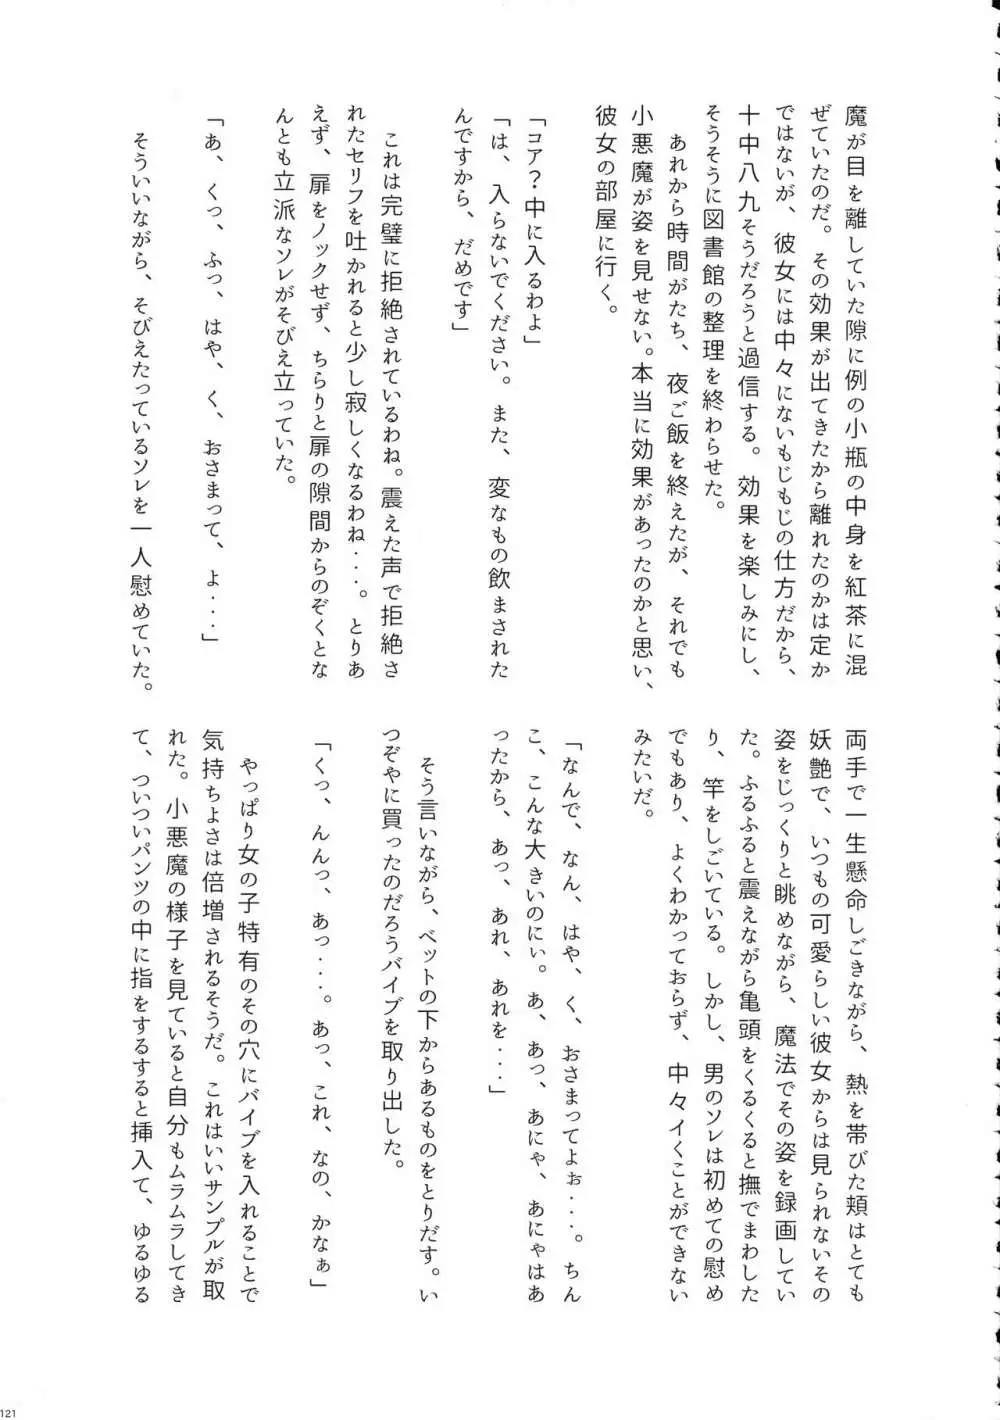 魔が目を離していた隙に例の小瓶の中身を紅茶に混
ぜていたのだ。その効果が出てきたから離れたのかは定か
ではないが、彼女には中々にないもじもじの仕方だから、
十中八九そうだろうと過信する。効果を楽しみにし、
そうそうに図書館の整理を終わらせた。
あれから時間がたち、夜ご飯を終えたが、それでも
小悪魔が姿を見せない。本当に効果があったのかと思い、
彼女の部屋に行く。
「コア？中に入るわよ」
「は、入らないでください。また、変なもの飲まされた
んですから、だめです」
これは完璧に拒絶されているわね。震えた声で拒絶さ
れたセリフを吐かれると少し寂しくなるわね・・・。とりあ
えず、扉をノックせず、ちらりと扉の隙間からのぞくとな
んとも立派なソレがそびえ立っていた。
「あ、くっ、ふっ、はや、く、おさまって、よ・・・」
そういいながら、そびえたっているソレを一人慰めていた。
両手で一生懸命しごきながら、熱を帯びた頬はとても
妖艶で、いつもの可愛らしい彼女からは見られないその
姿をじっくりと眺めながら、魔法でその姿を録画してい
た。ふるふると震えながら亀頭をくるくると撫でまわした
り、竿をしごいている。しかし、男のソレは初めての慰め
でもあり、よくわかっておらず、中々イくことができない
みたいだ。
「なんで、なん、はや、く、おさまってよぉ・・・。ちん
こ、こんな大きいのにぃ。あ、あっ、あにゃ、あにゃはあ
ったから、あっ、あれ、あれを・・・」
そう言いながら、ベットの下からあるものをとりだす。い
つぞやに買ったのだろうバイブを取り出した。
「くっ、んんっ、あっ・・・。あっ、これ、なの、かなぁ」
やっぱり女の子特有のその穴にバイブを入れることで
気持ちよさは倍増されるそうだ。これはいいサンプルが取
れた。小悪魔の様子を見ていると自分もムラムラしてき
て、ついついパンツの中に指をするすると挿入て、ゆるゆる
121